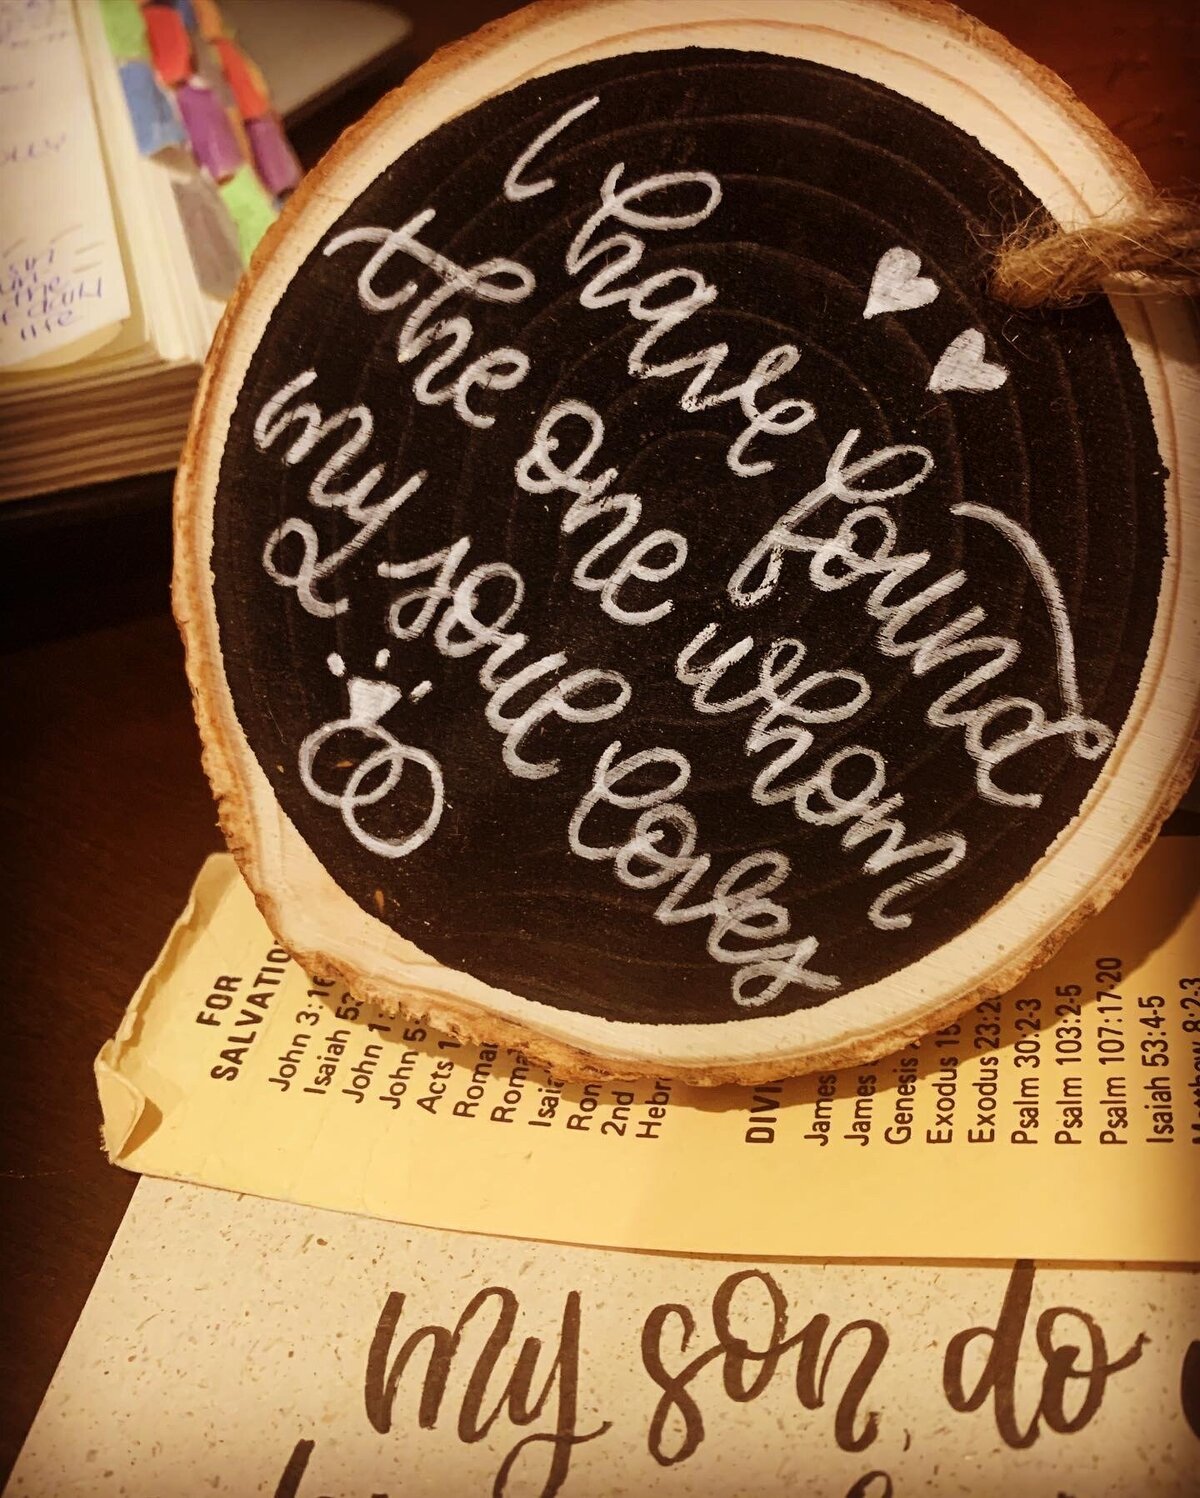 I have found
the one whom
my soul loves
life
FOR
SALVATIO
John 3:16
Isaiah 53
John 1:
John 5:
Acts 1
Roma
Roma
Isaia
Rom
2nd
Hebr
DIVI
James
James
Genesis
Exodus 15
Exodus 23:2
Psalm 30:2-3
Psalm 103:2-5
Psalm 107:17-20
Isaiah 53:4-5
my son, do